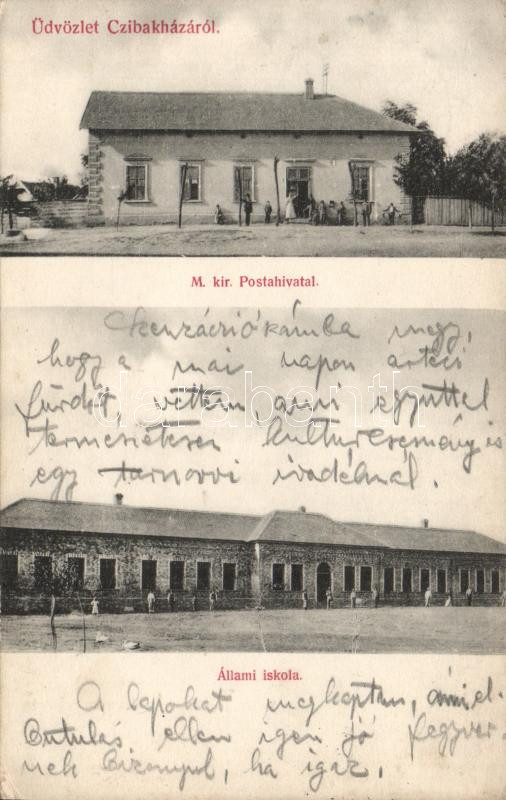 Üdvözlet Czibakházáról.
M. kir. Postahivatal.
Szenzációkámba megy,
hogy a mai napon artézi
fürdőt, vettem, ami egyúttal
természetesen kulturesemény is
egy tarnovvi ivadéknál.
darabanth
Állami iskola.
A lapokat megkaptam,
butulás ellen igen jó fegyver-
nek bizonyul, ha igaz.